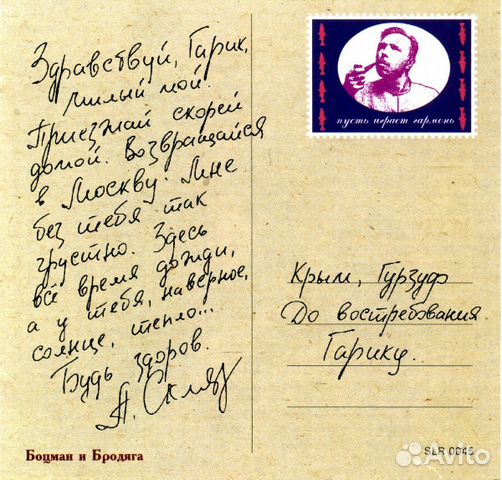 Здравствуй, Гарик,
милый мой.
Приезжай скорей
домой. Возвращайся
в Москву. Мне
без тебя так
грустно. Здесь
всё время дожди,
а у тебя, наверное,
солнце, тепло...
Будь здоров.
А. Скляр
пусть играет гармонь
Крым, Гурзуф
До востребования.
Гарику.
Боцман и Бродяга
SLR 0045
Avito